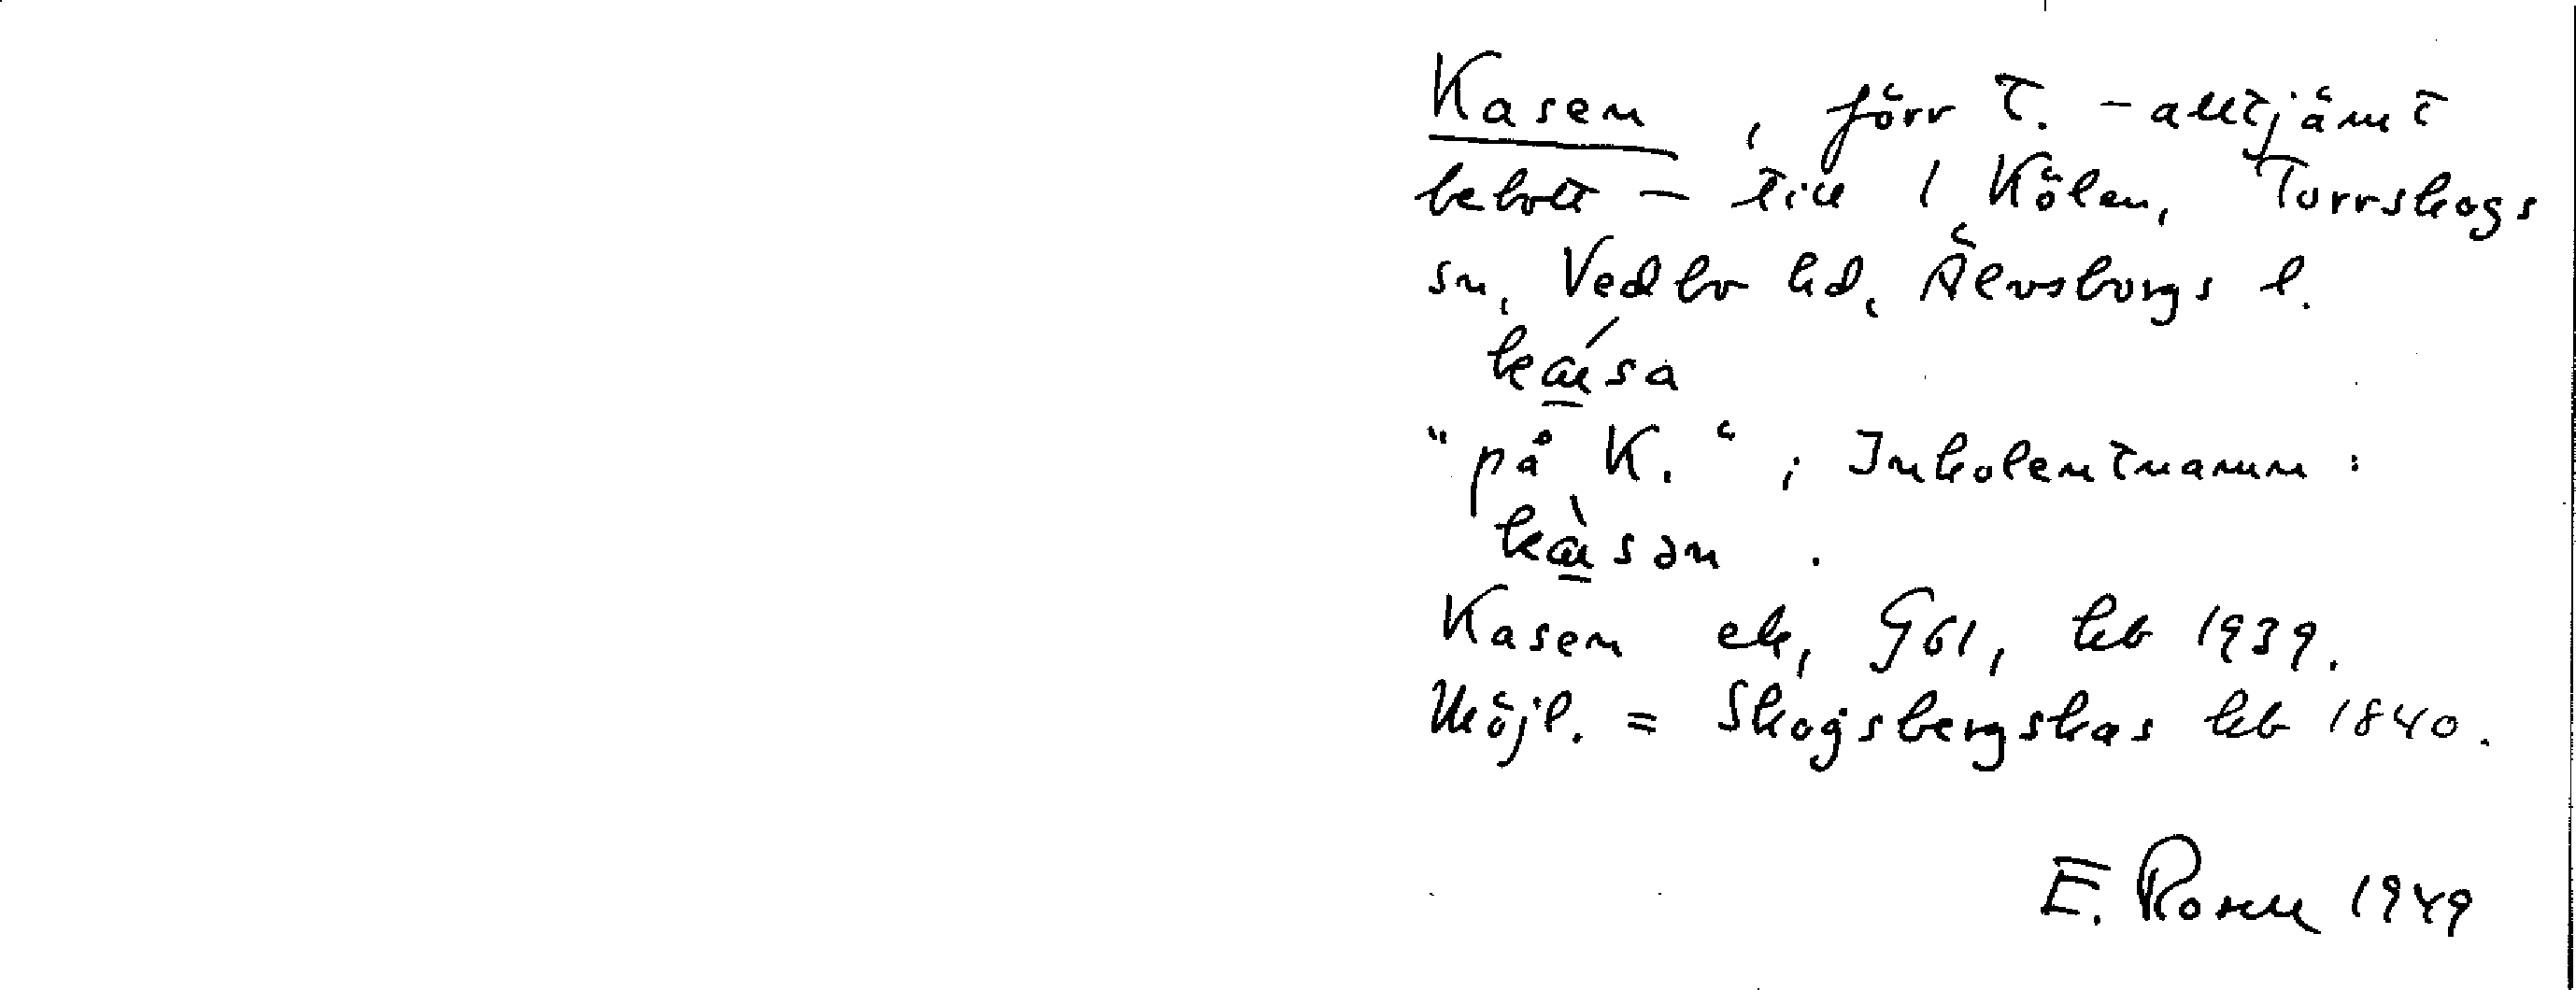 Kasen, förr t. - alltjämt
bebott - till 1 Kölen, Torrskogs
sn, Vedbo hd, Älvsborgs l.
ká̱sa
"på K."; Inkolentnamn:
kà̱sən.
Kasen ek, G61, kb 1939.
Möjl. = Skogsbergskas kb 1840.
E. Rosell 1949